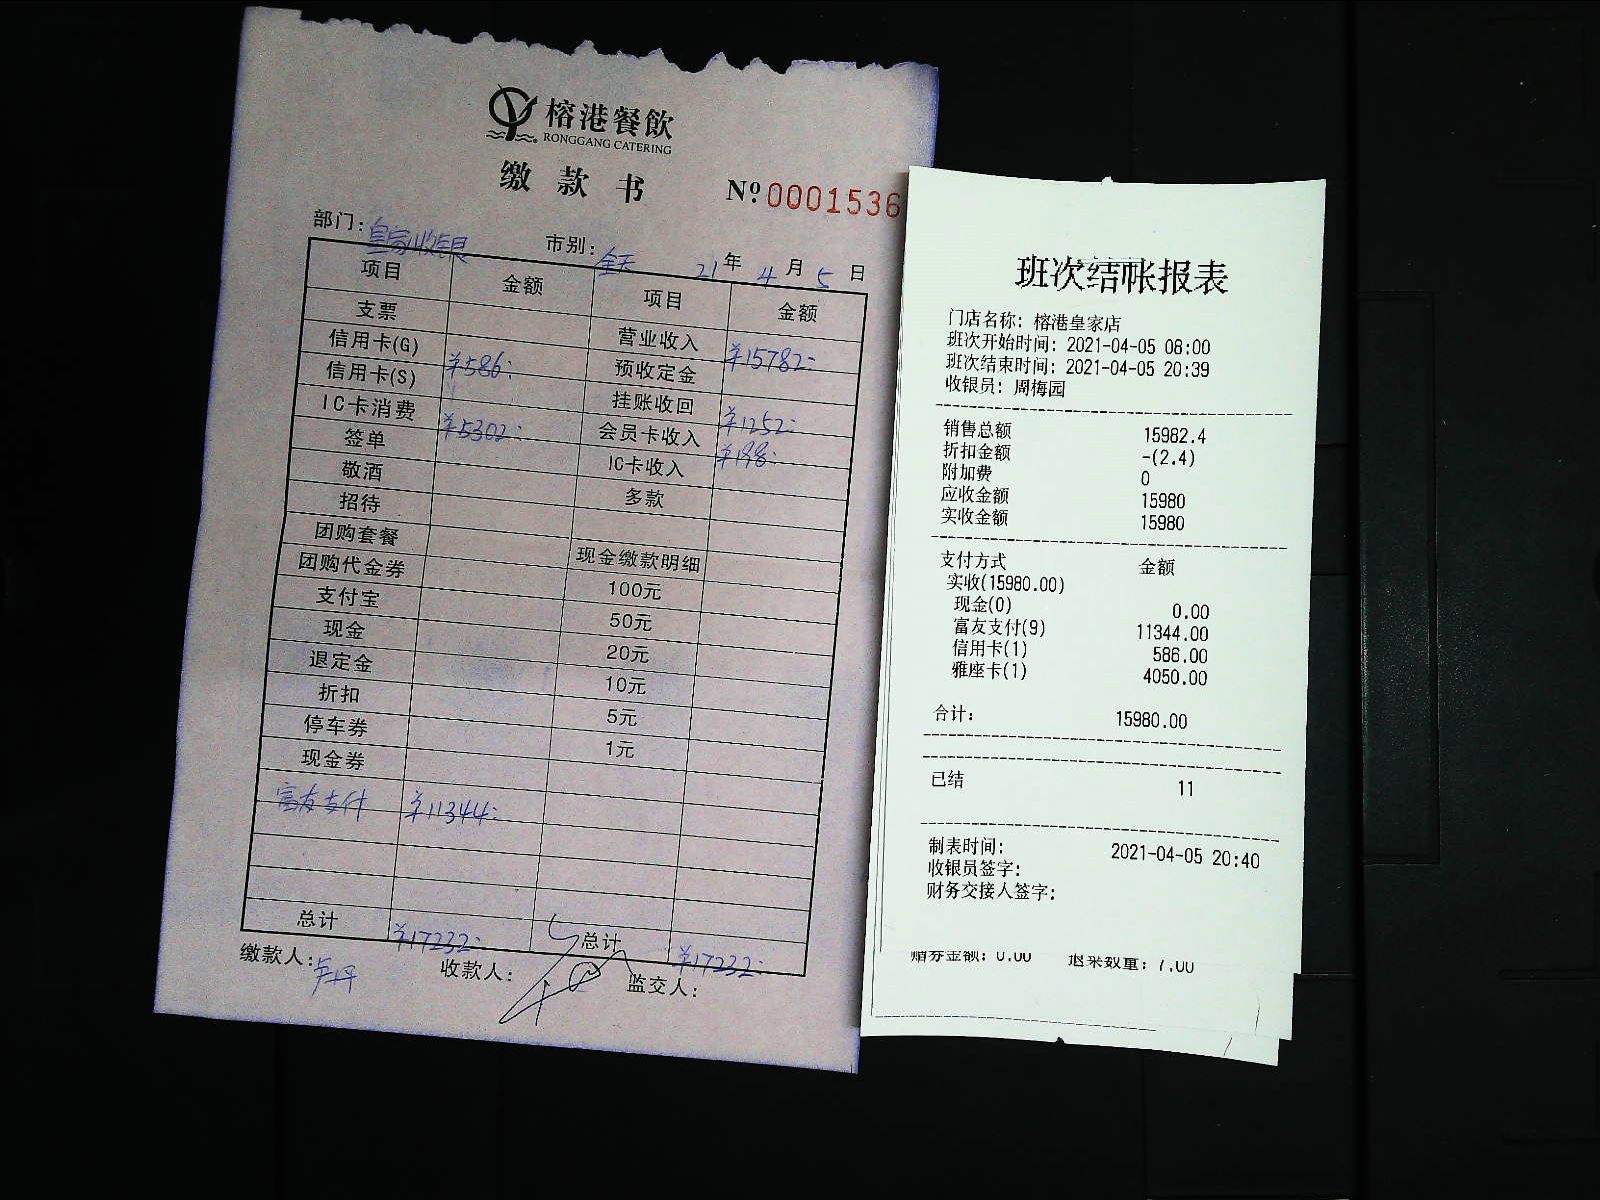 榕港餐飲
RONGGANG CATERING
缴款书 Nº 0001536
部门: 皇家收银 市别: 全天 21年4月5日
项目 金额 项目 金额
支票 营业收入 ¥15782:
信用卡(G) ¥586: 预收定金
信用卡(S) 挂账收回 ¥1252:
IC卡消费 ¥5302: 会员卡收入 ¥198:
签单 IC卡收入
敬酒 多款
招待
团购套餐 现金缴款明细
团购代金券 100元
支付宝 50元
现金 20元
退定金 10元
折扣 5元
停车券 1元
现金券
富友支付 ¥11344:
总计 ¥17232: 总计 ¥17232:
缴款人: 收款人: 监交人:
班次结帐报表
门店名称: 榕港皇家店
班次开始时间: 2021-04-05 08:00
班次结束时间: 2021-04-05 20:39
收银员: 周梅园
销售总额 15982.4
折扣金额 -(2.4)
附加费 0
应收金额 15980
实收金额 15980
支付方式 金额
实收(15980.00)
现金(0) 0.00
富友支付(9) 11344.00
信用卡(1) 586.00
雅座卡(1) 4050.00
合计: 15980.00
已结 11
制表时间: 2021-04-05 20:40
收银员签字:
财务交接人签字:
赠券金额: 0.00 退菜数量: 7.00